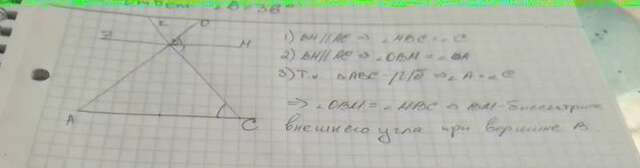 Ответ: ∠B=38°
E
D
B
M
A
C
1) BM||AC ⇒ ∠MBC=∠C
2) BM||AC ⇒ ∠DBM=∠A
3) Т.к △ABC-р/б ⇒ ∠A=∠C
⇒ ∠DBM=∠MBC ⇒ BM-биссектриса
внешнего угла при вершине B.